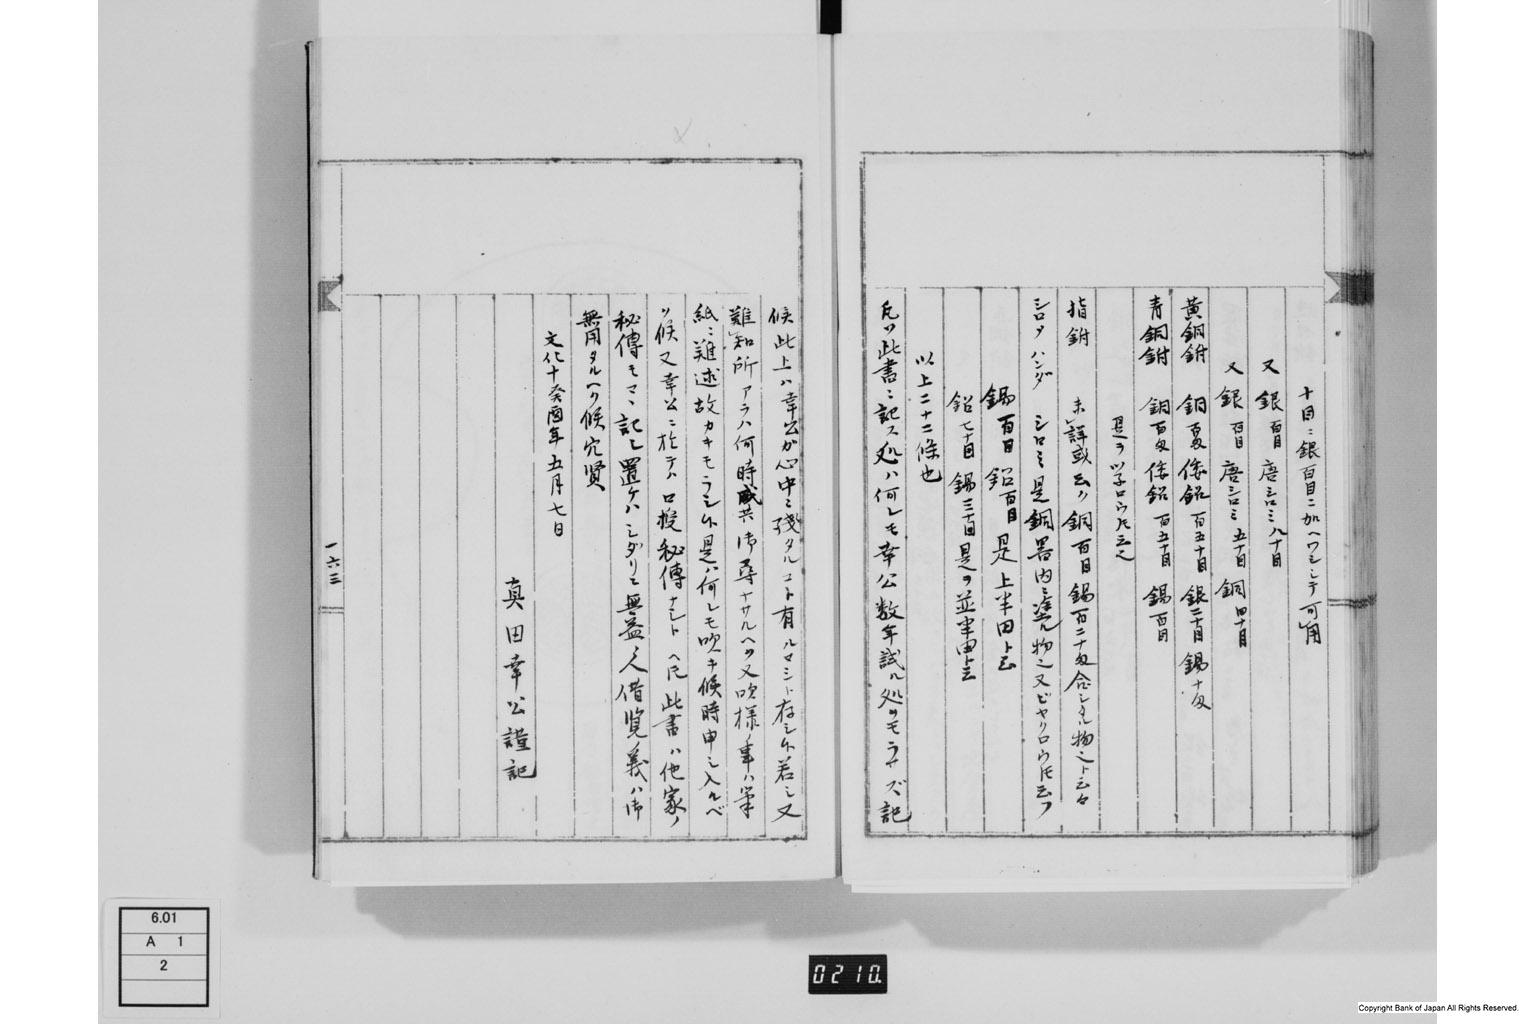 十目ニ銀百目ニ加ヘワシシテ可用
又銀百目 唐シロミ八十目
又銀百目 唐シロミ五十目 銅四十目
黄銅鈝 銅百匁 倭鉛百五十目 銀二十目 錫十匁
青銅鈝 銅百匁 倭鉛百五十目 錫百目
是ヲ ロウ
指鈝 未詳或云ク銅百目錫百二十匁合シタル物也ト云々
シロメ ハンダ シロミ是銅器内ニ塗ル物也又ビヤクロウ
錫百目 鉛百目 是上半田ト云
鉛七十目 錫三十目 是ヲ並半田ト云
以上二十二條也
凡ソ此書ニ記ス処ハ何レモ幸公数年試ル処ヲモラサズ記
候此上ハ幸公ガ心中ニ残タルコト有ルマシト存シ候若シ又
難知所アラハ何時成共御尋ナサルヘク又吹様ノ事ハ筆
紙ニ難述故カキモラシ候是ハ何レモ吹キ候時申シ入ルベ
ク候又幸公ニ於テハ口授秘傳ナシトヘ此書ハ他家ノ
秘傳モマヽ記シ置ケハミダリニ無益ノ人借覧義ハ御
無用タルヘク候穴賢
文化十癸酉年五月七日
真田幸公謹記
一六三
6.01
A 1
2
0210.
Copyright Bank of Japan All Rights Reserved.